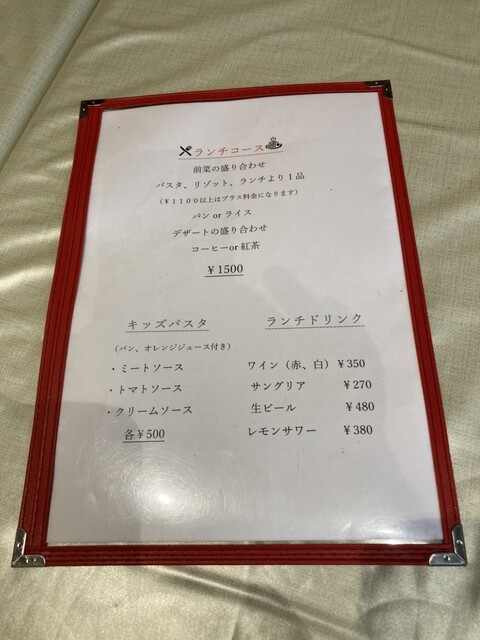 ランチコース
前菜の盛り合わせ
パスタ、リゾット、ランチより1品
(¥1100以上はプラス料金になります)
パン or ライス
デザートの盛り合わせ
コーヒーor 紅茶
¥1500
キッズパスタ
(パン、オレンジジュース付き)
・ミートソース
・トマトソース
・クリームソース
各¥500
ランチドリンク
ワイン(赤、白)¥350
サングリア ¥270
生ビール ¥480
レモンサワー ¥380